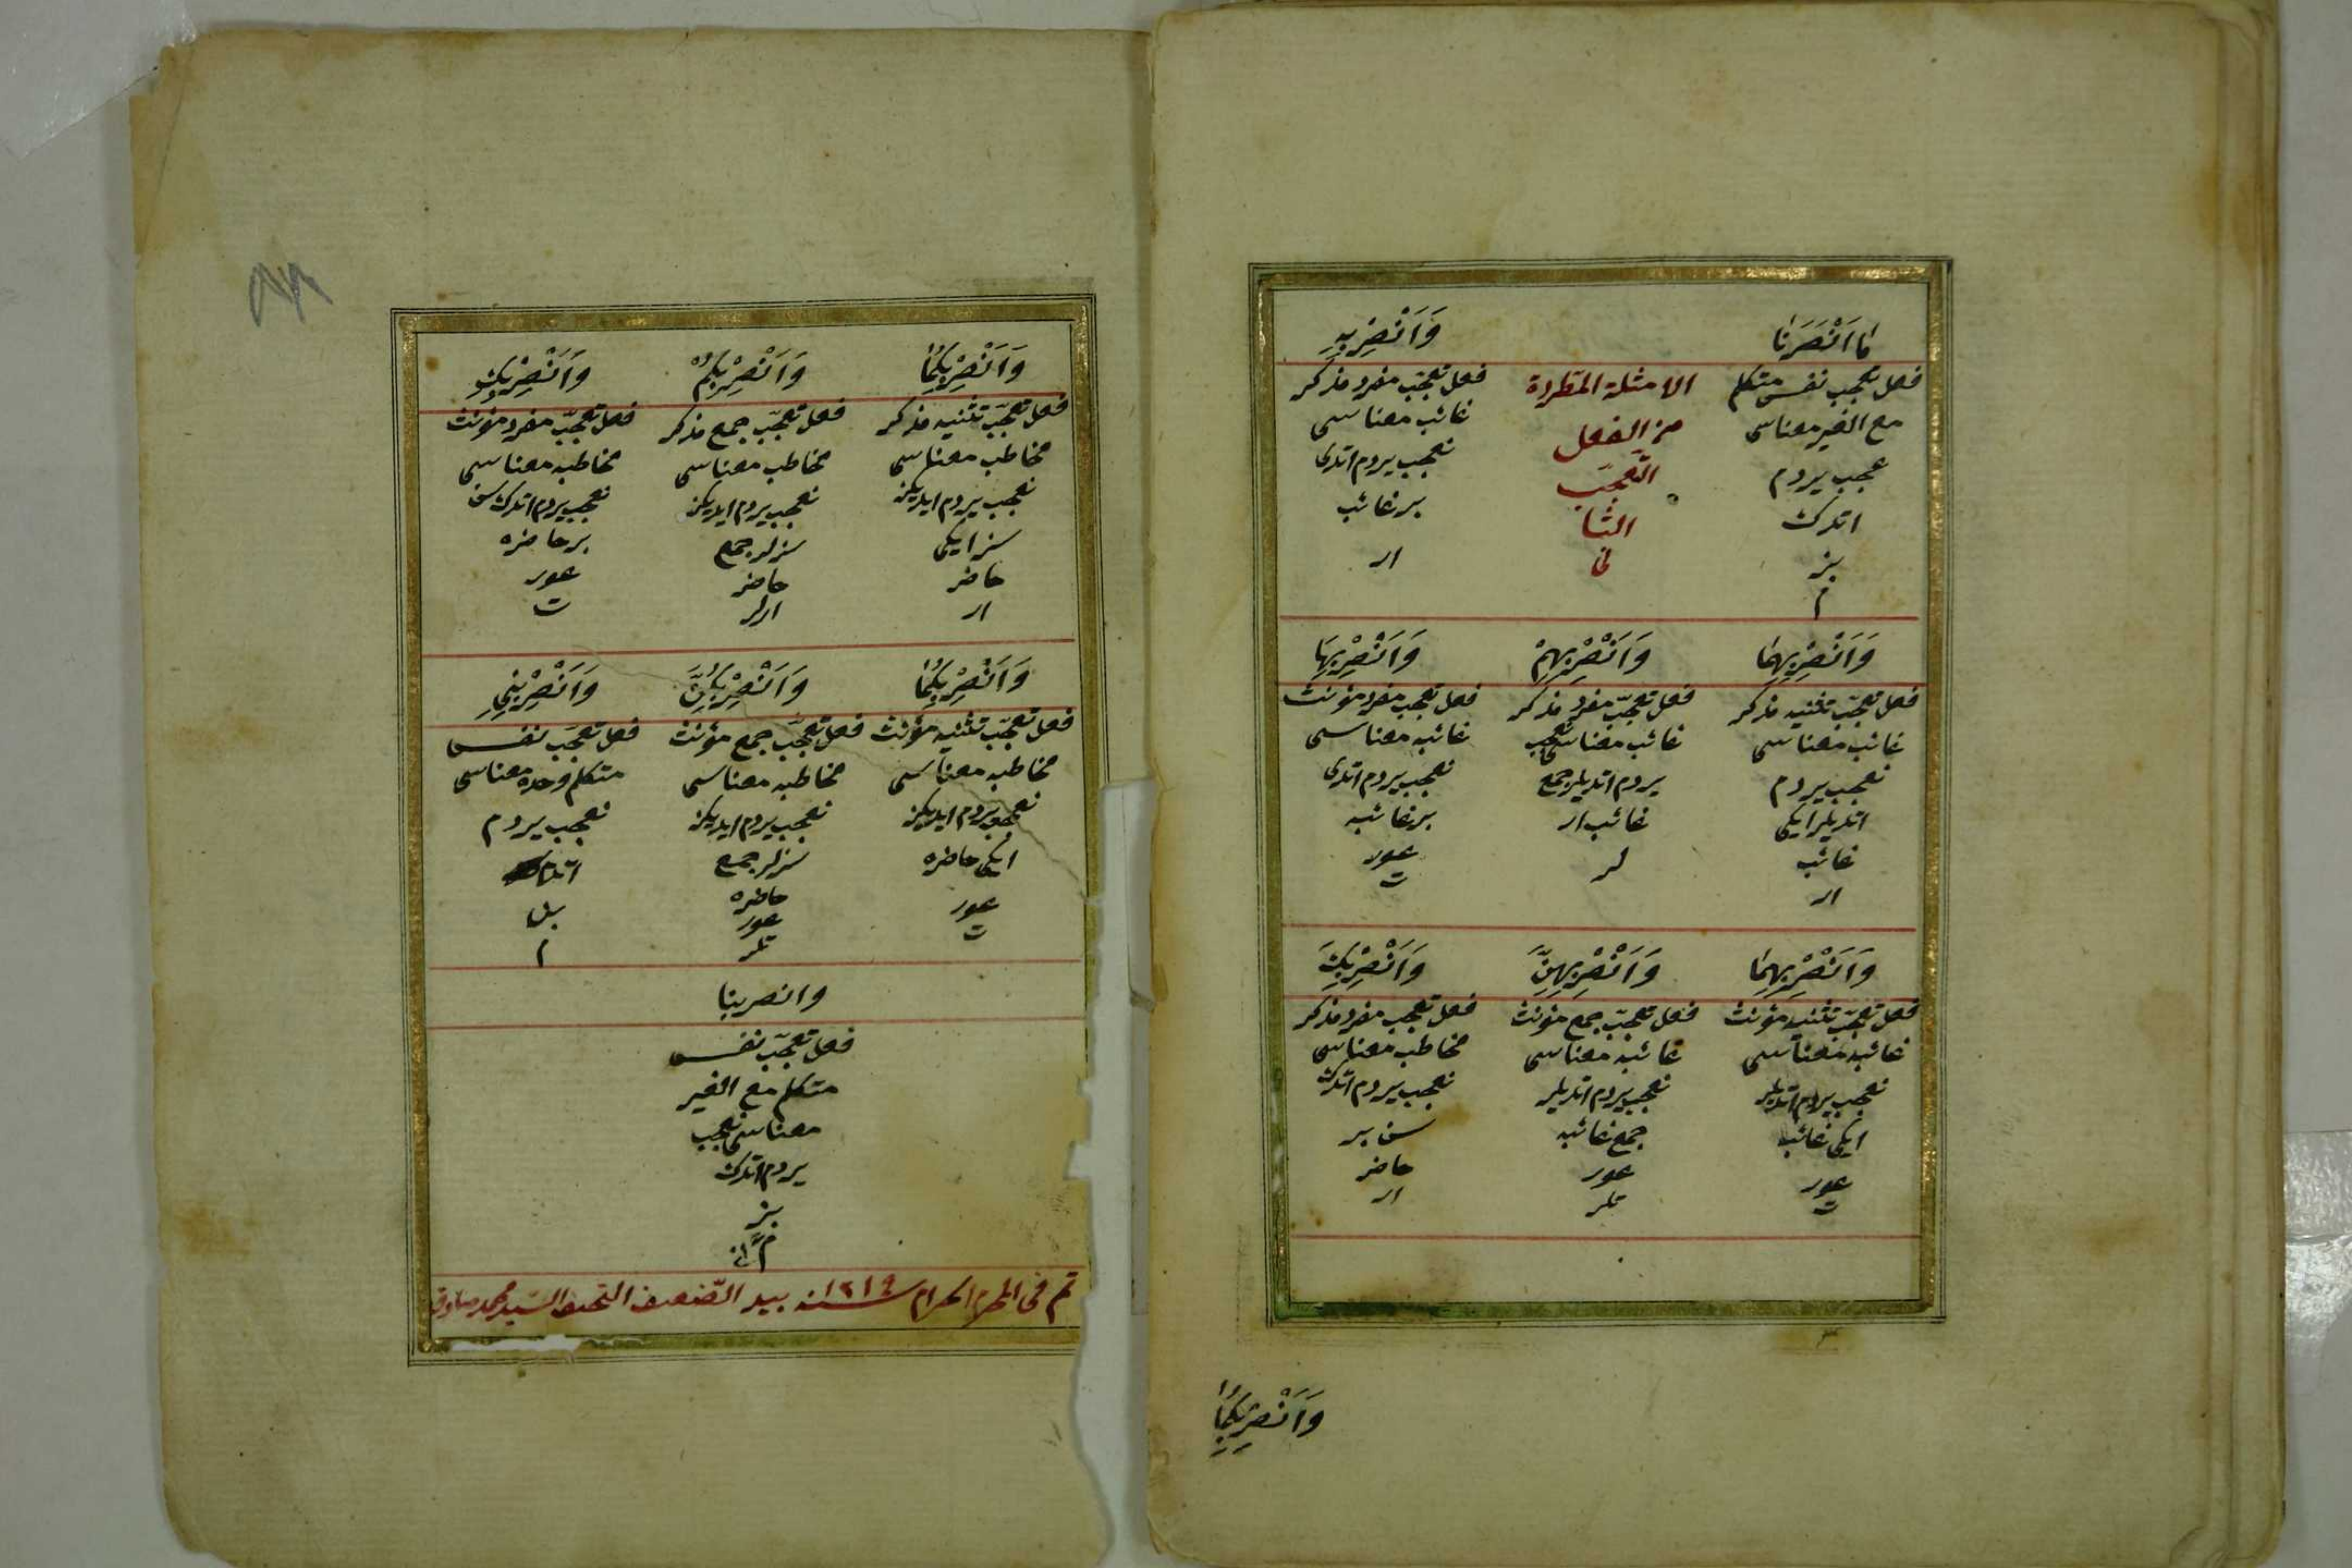 مَا اَنْصَرَنَا
فعل تعجب نفس متكلم
مع الغير معناسى
عجب يردم
اتدك
بز
م
الامثلة المطردة
من الفعل
التعجّب
الثا
نى
وَاَنْصِرْ بِهِ
فعل تعجب مفرد مذكر
غائب معناسى
تعجب يردم اتدى
بر غائب
ار
وَاَنْصِرْ بِهِمَا
فعل تعجّب تثنيه مذكر
غائب معناسى
تعجب يردم
اتديلر ايكى
غائب
ار
وَاَنْصِرْ بِهِمْ
فعل تعجّب مفرد مذكر
غائب معناسى تعجب
يردم اتديلر جمع
غائب ار
لر
وَاَنْصِرْ بِهَا
فعل تعجب مفرد مؤنث
غائبه معناسى
تعجب يردم اتدى
بر غائبه
عور
ت
وَاَنْصِرْ بِهِمَا
فعل تعجّب تثنيه مؤنث
غائبه معناسى
تعجب يردم اتديلر
ايكى غائبه
عور
ت
وَاَنْصِرْ بِهِنَّ
فعل تعجّب جمع مؤنث
غائبه معناسى
تعجب يردم اتديلر
جمع غائبه
عور
تلر
وَاَنْصِرْ بِكَ
فعل تعجب مفرد مذكر
مخاطب معناسى
تعجب يردم اتدك
سن بر
حاضر
ار
وَاَنْصِرْ بِكُمَا
وَاَنْصِرْ بِكُمَا
فعل تعجّب تثنيه مذكر
مخاطب معناسى
تعجب يردم ايديكز
سز ايكى
حاضر
ار
وَاَنْصِرْ بِكُمْ
فعل تعجّب جمع مذكر
مخاطب معناسى
تعجب يردم ايديكز
سزلر جمع
حاضر
ارلر
وَاَنْصِرْ بِكِ
فعل تعجّب مفرد مؤنث
مخاطبه معناسى
تعجب يردم اتدك سن
بر حاضره
عور
ت
وَاَنْصِرْ بِكُمَا
فعل تعجّب تثنيه مؤنث
مخاطبه معناسى
تعجب يردم ايديكز
ايكى حاضره
عور
ت
وَاَنْصِرْ بِكُنَّ
فعل تعجّب جمع مؤنث
مخاطبه معناسى
تعجب يردم ايديكز
سزلر جمع
حاضره
عور
تلر
وَاَنْصِرْ بِى
فعل تعجّب نفس
متكلم وحده معناسى
تعجب يردم
بن
م
وانصر بنا
فعل تعجّب نفس
متكلم مع الغير
معناسى تعجب
يردم اتدك
بز
م
تم فى المحرم الحرام سنه ١٢١٤ بيد الضّعيف النحيف السّيد محمد صادق